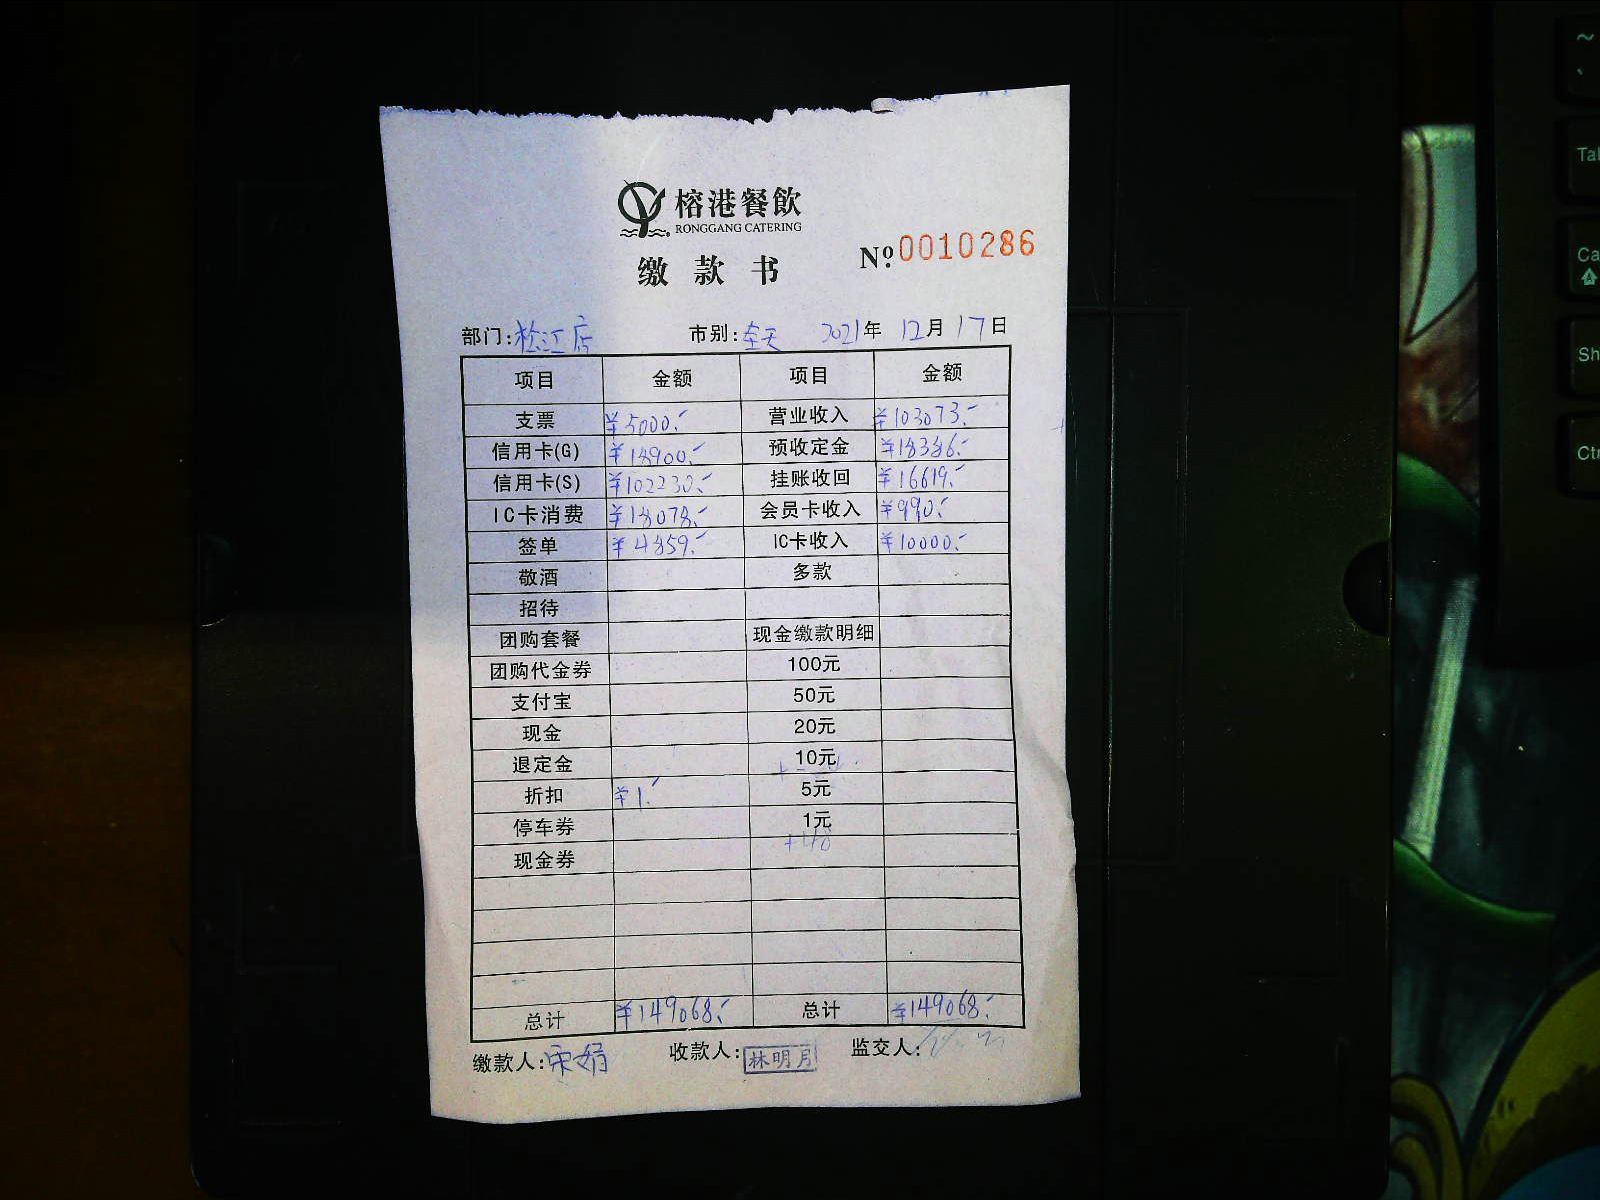 榕港餐飲
RONGGANG CATERING
缴款书 Nº 0010286
部门: 松江店 市别: 全天 2021年 12月 17日
项目 金额 项目 金额
支票 ¥5000.- 营业收入 ¥103073.-
信用卡(G) ¥18900.- 预收定金 ¥18386.-
信用卡(S) ¥102230.- 挂账收回 ¥16619.-
IC卡消费 ¥18078.- 会员卡收入 ¥990.-
签单 ¥4859.- IC卡收入 ¥10000.-
敬酒 多款
招待
团购套餐 现金缴款明细
团购代金券 100元
支付宝 50元
现金 20元
退定金 10元
折扣 ¥1.- 5元
停车券 1元
现金券 +48
总计 ¥149068.- 总计 ¥149068.-
缴款人: 宋娟 收款人: 林明月 监交人:
~
Ca
Sh
Ctr